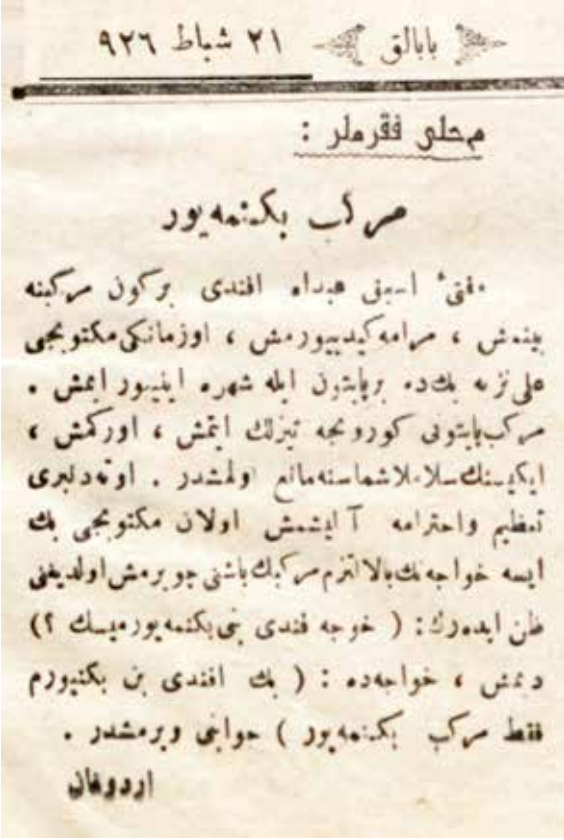 بابالق ٢١ شباط ٩٢٦
محلی فقره‌لر :
مركب بكنمه‌یور
مفتیٔ اسبق عبداه افندی بركون مركبنه
بینمش ، مرامه كیدییورمش ، اوزمانكی مكتوبجی
علی نزیه بك‌ده برپایتون ایله شهره اینییور ایمش .
مركب پایتونی كورونجه تیزلك ایتمش ، اوركمش ،
ایكیسنك سلاملاشماسنه مانع اولمشدر . اوته‌دنبری
تعظیم واحترامه آلیشمش اولان مكتوبجی بك
ایسه خواجه‌نك بالالتزم مركبك باشنی چویرمش اولدیغی
ظن ایده‌رك : ( خوجه فندی بنی بكنمه‌یورمیسك ؟ )
دیمش ، خواجه‌ده : ( بك افندی بن بكنیورم
فقط مركب بكنمه‌یور ) جوابنی ویرمشدر .